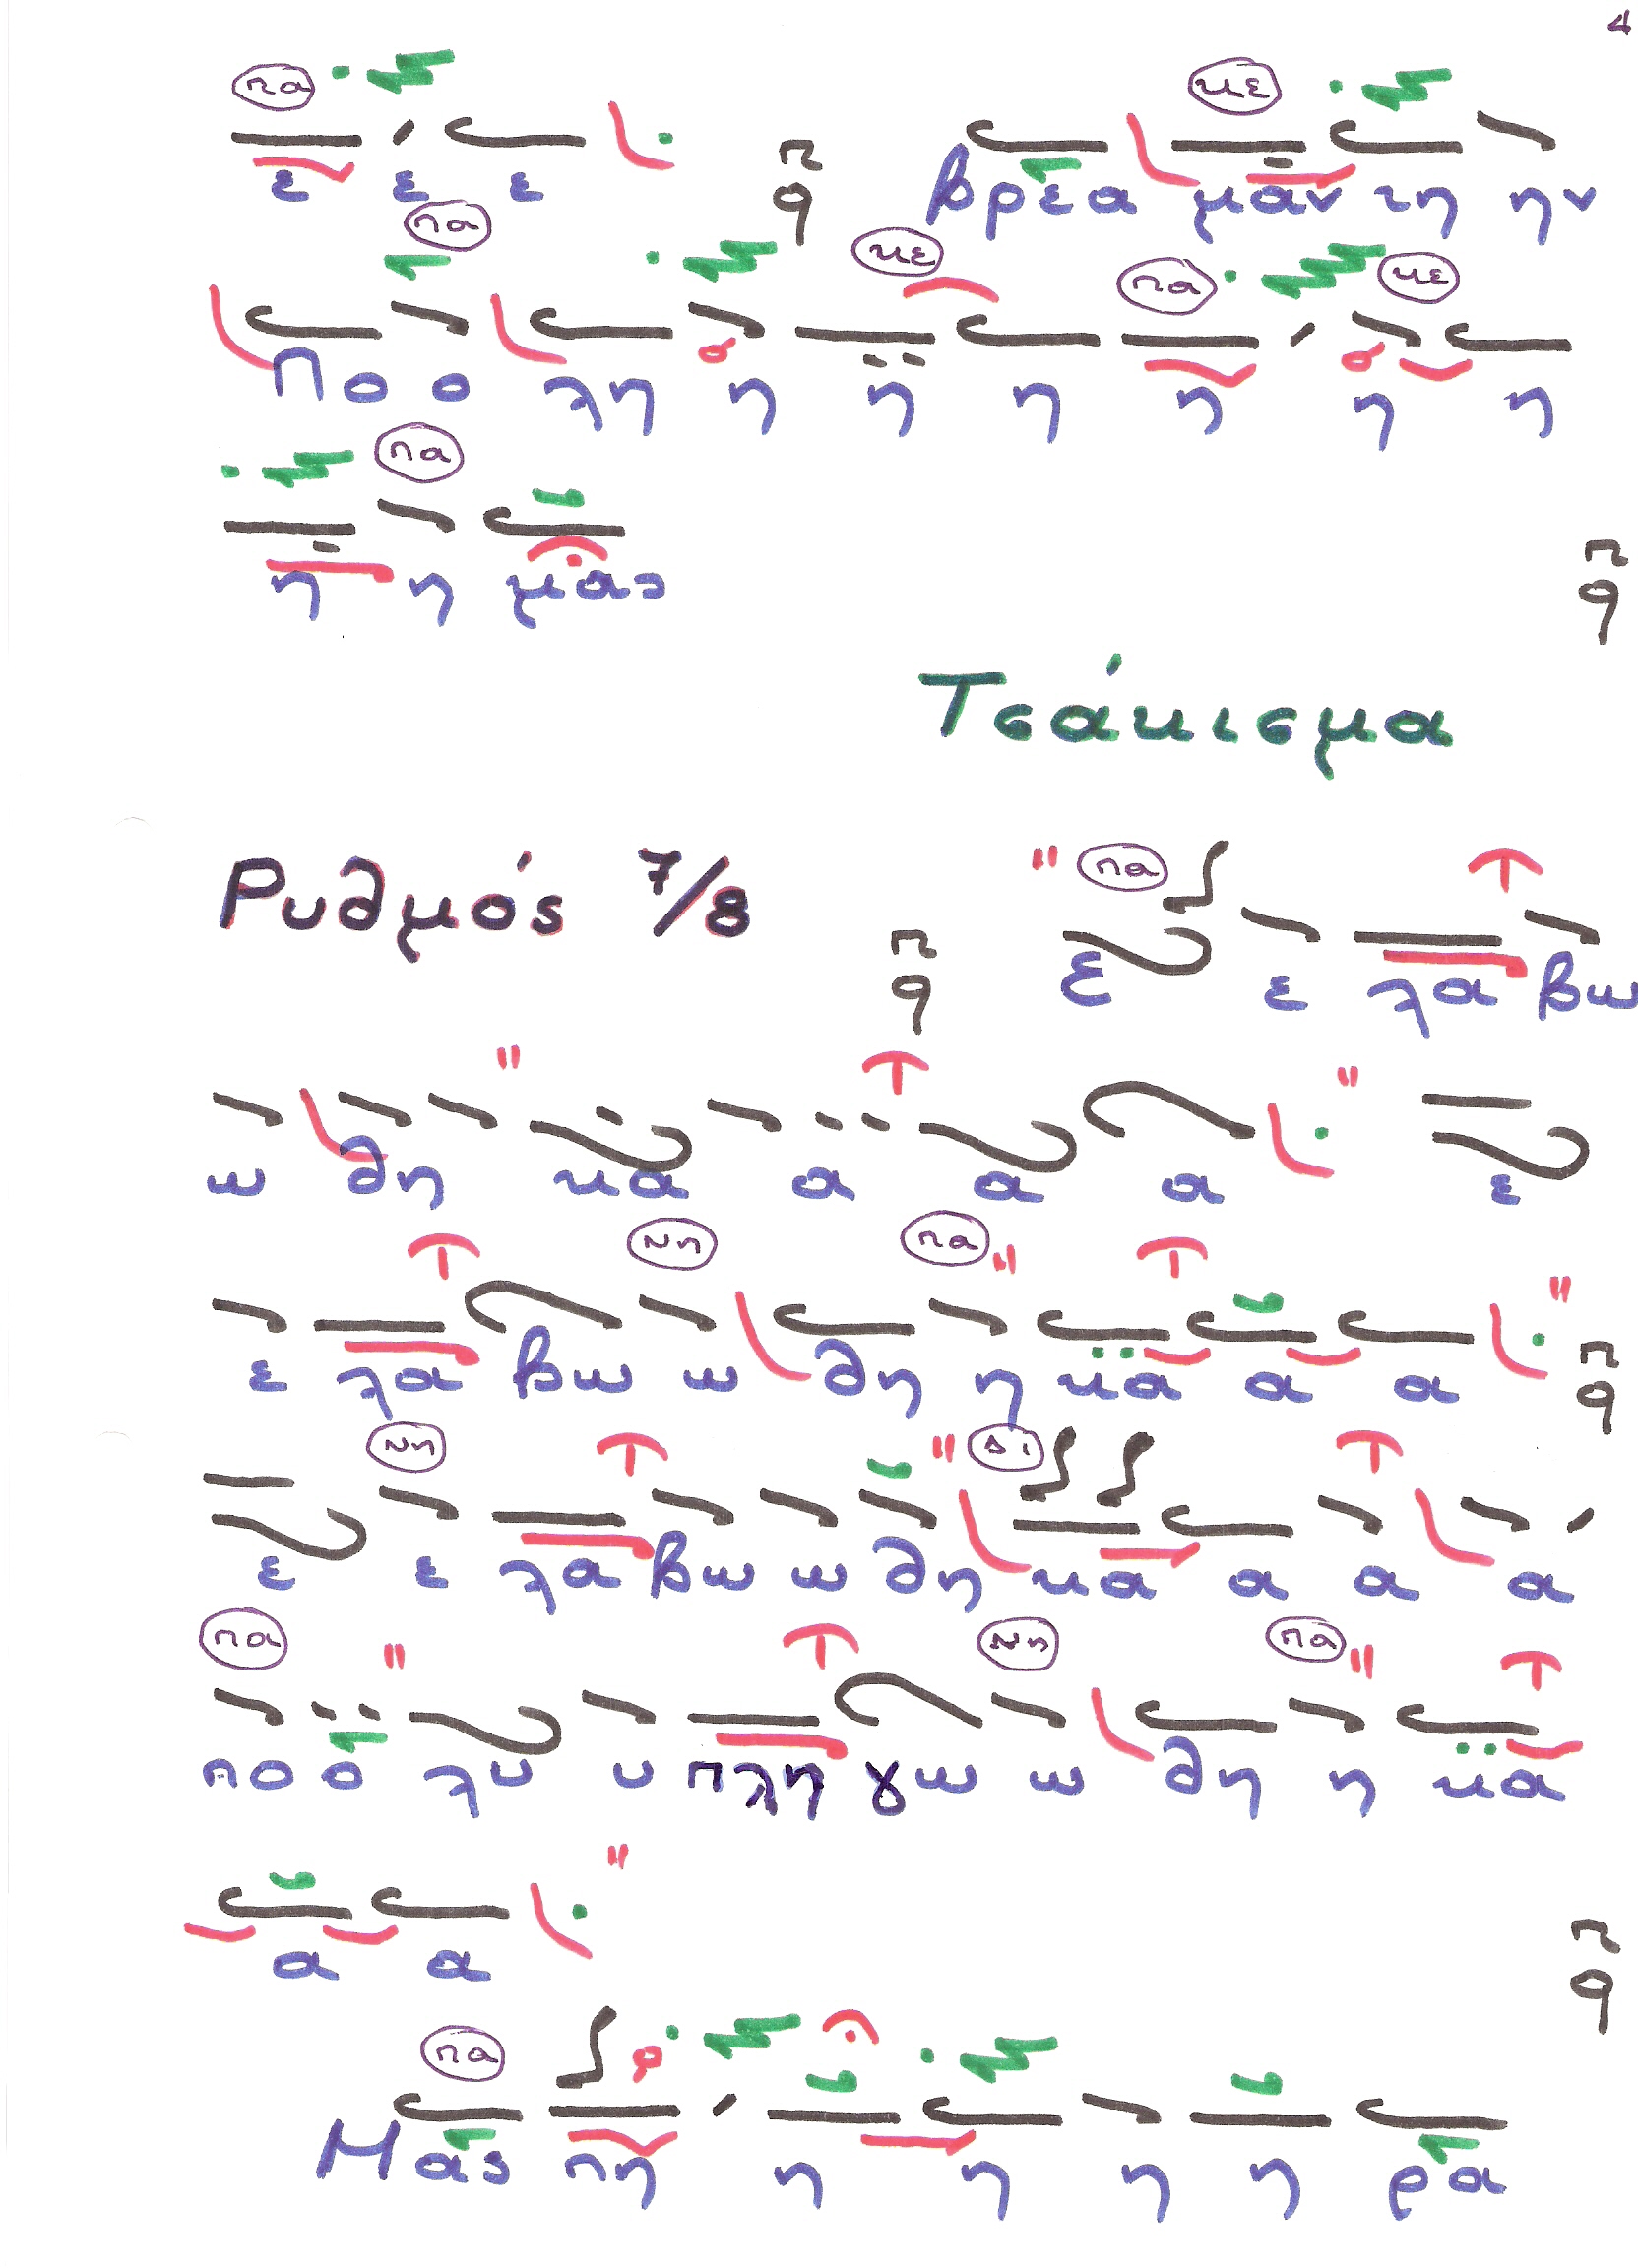 4
πα
κε
ε ε ε π q βρεα μαν τη ην
πα κε πα κε
Πο ο λη η η η η η η
πα
η η μας π q
Τσάκισμα
Ρυθμός 7/8 π q πα
ε ε λα βω
ω θη κα α α α ε
Νη πα
ε λα βω ω θη η κα α α π q
Νη Δι
ε ε λα βω ω θη κα α α α
πα Νη πα
πο ο λυ υ πλη γω ω θη η κα
α α π q
πα
Μας πη η η η η ρα